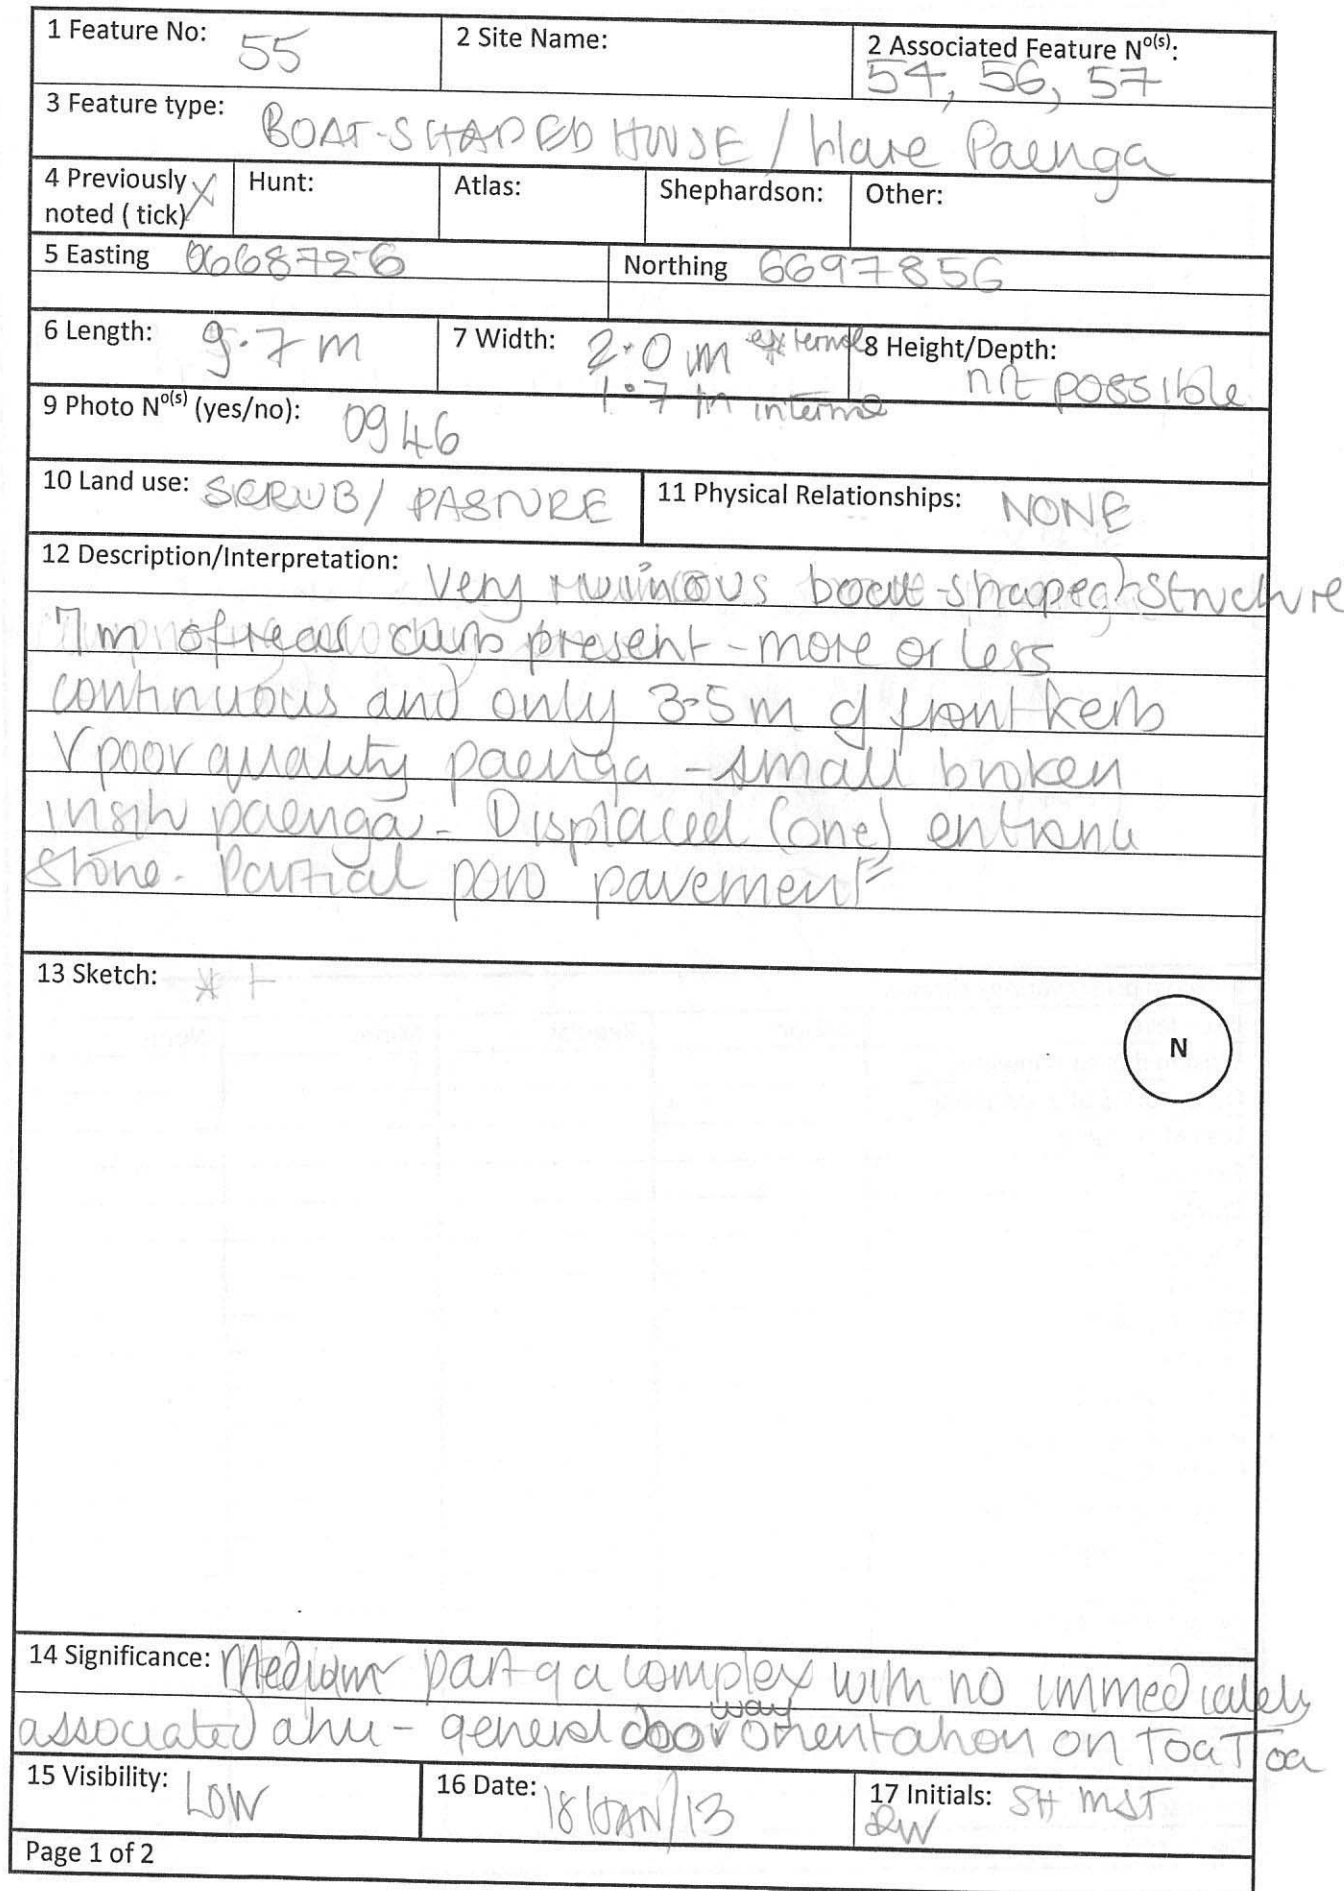 1 Feature No: 55
2 Site Name:
2 Associated Feature No(s): 54, 56, 57
3 Feature type: BOAT-SHAPED HOUSE / Hare Paenga
4 Previously noted ( tick) X
Hunt:
Atlas:
Shephardson:
Other:
5 Easting 0668726
Northing 6697856
6 Length: 9.7 m
7 Width: 2.0 m external
1.7 m internal
8 Height/Depth: not possible
9 Photo No(s) (yes/no): 0946
10 Land use: SCRUB / PASTURE
11 Physical Relationships: NONE
12 Description/Interpretation: Very ruinous boat-shaped structure
7m of rear curb present - more or less
continuous and only 3.5 m of front kerb
V poor quality paenga - small broken
insitu paenga - Displaced (one) entrance
stone. Partial poro pavement
13 Sketch:
N
14 Significance: Medium part of a complex with no immediately
associated ahu - general doorway orientation on Toa Toa
15 Visibility: LOW
16 Date: 18/JAN/13
17 Initials: SH MST
RW
Page 1 of 2